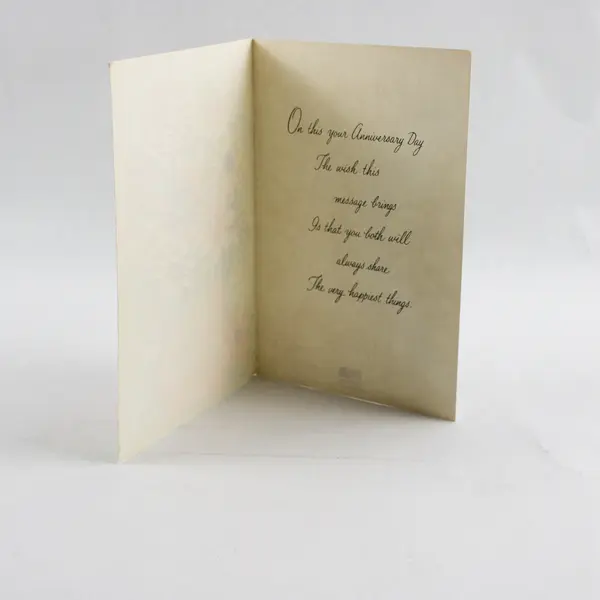 On this your Anniversary Day
The wish this
message brings
Is that you both will
always share
The very happiest things.